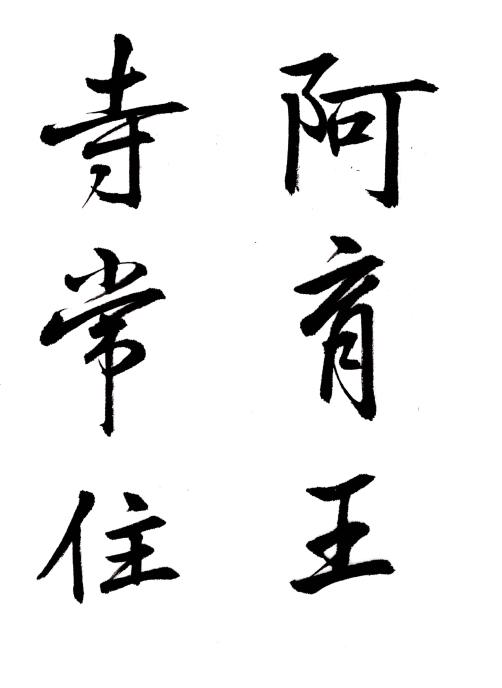 阿育王
寺常住